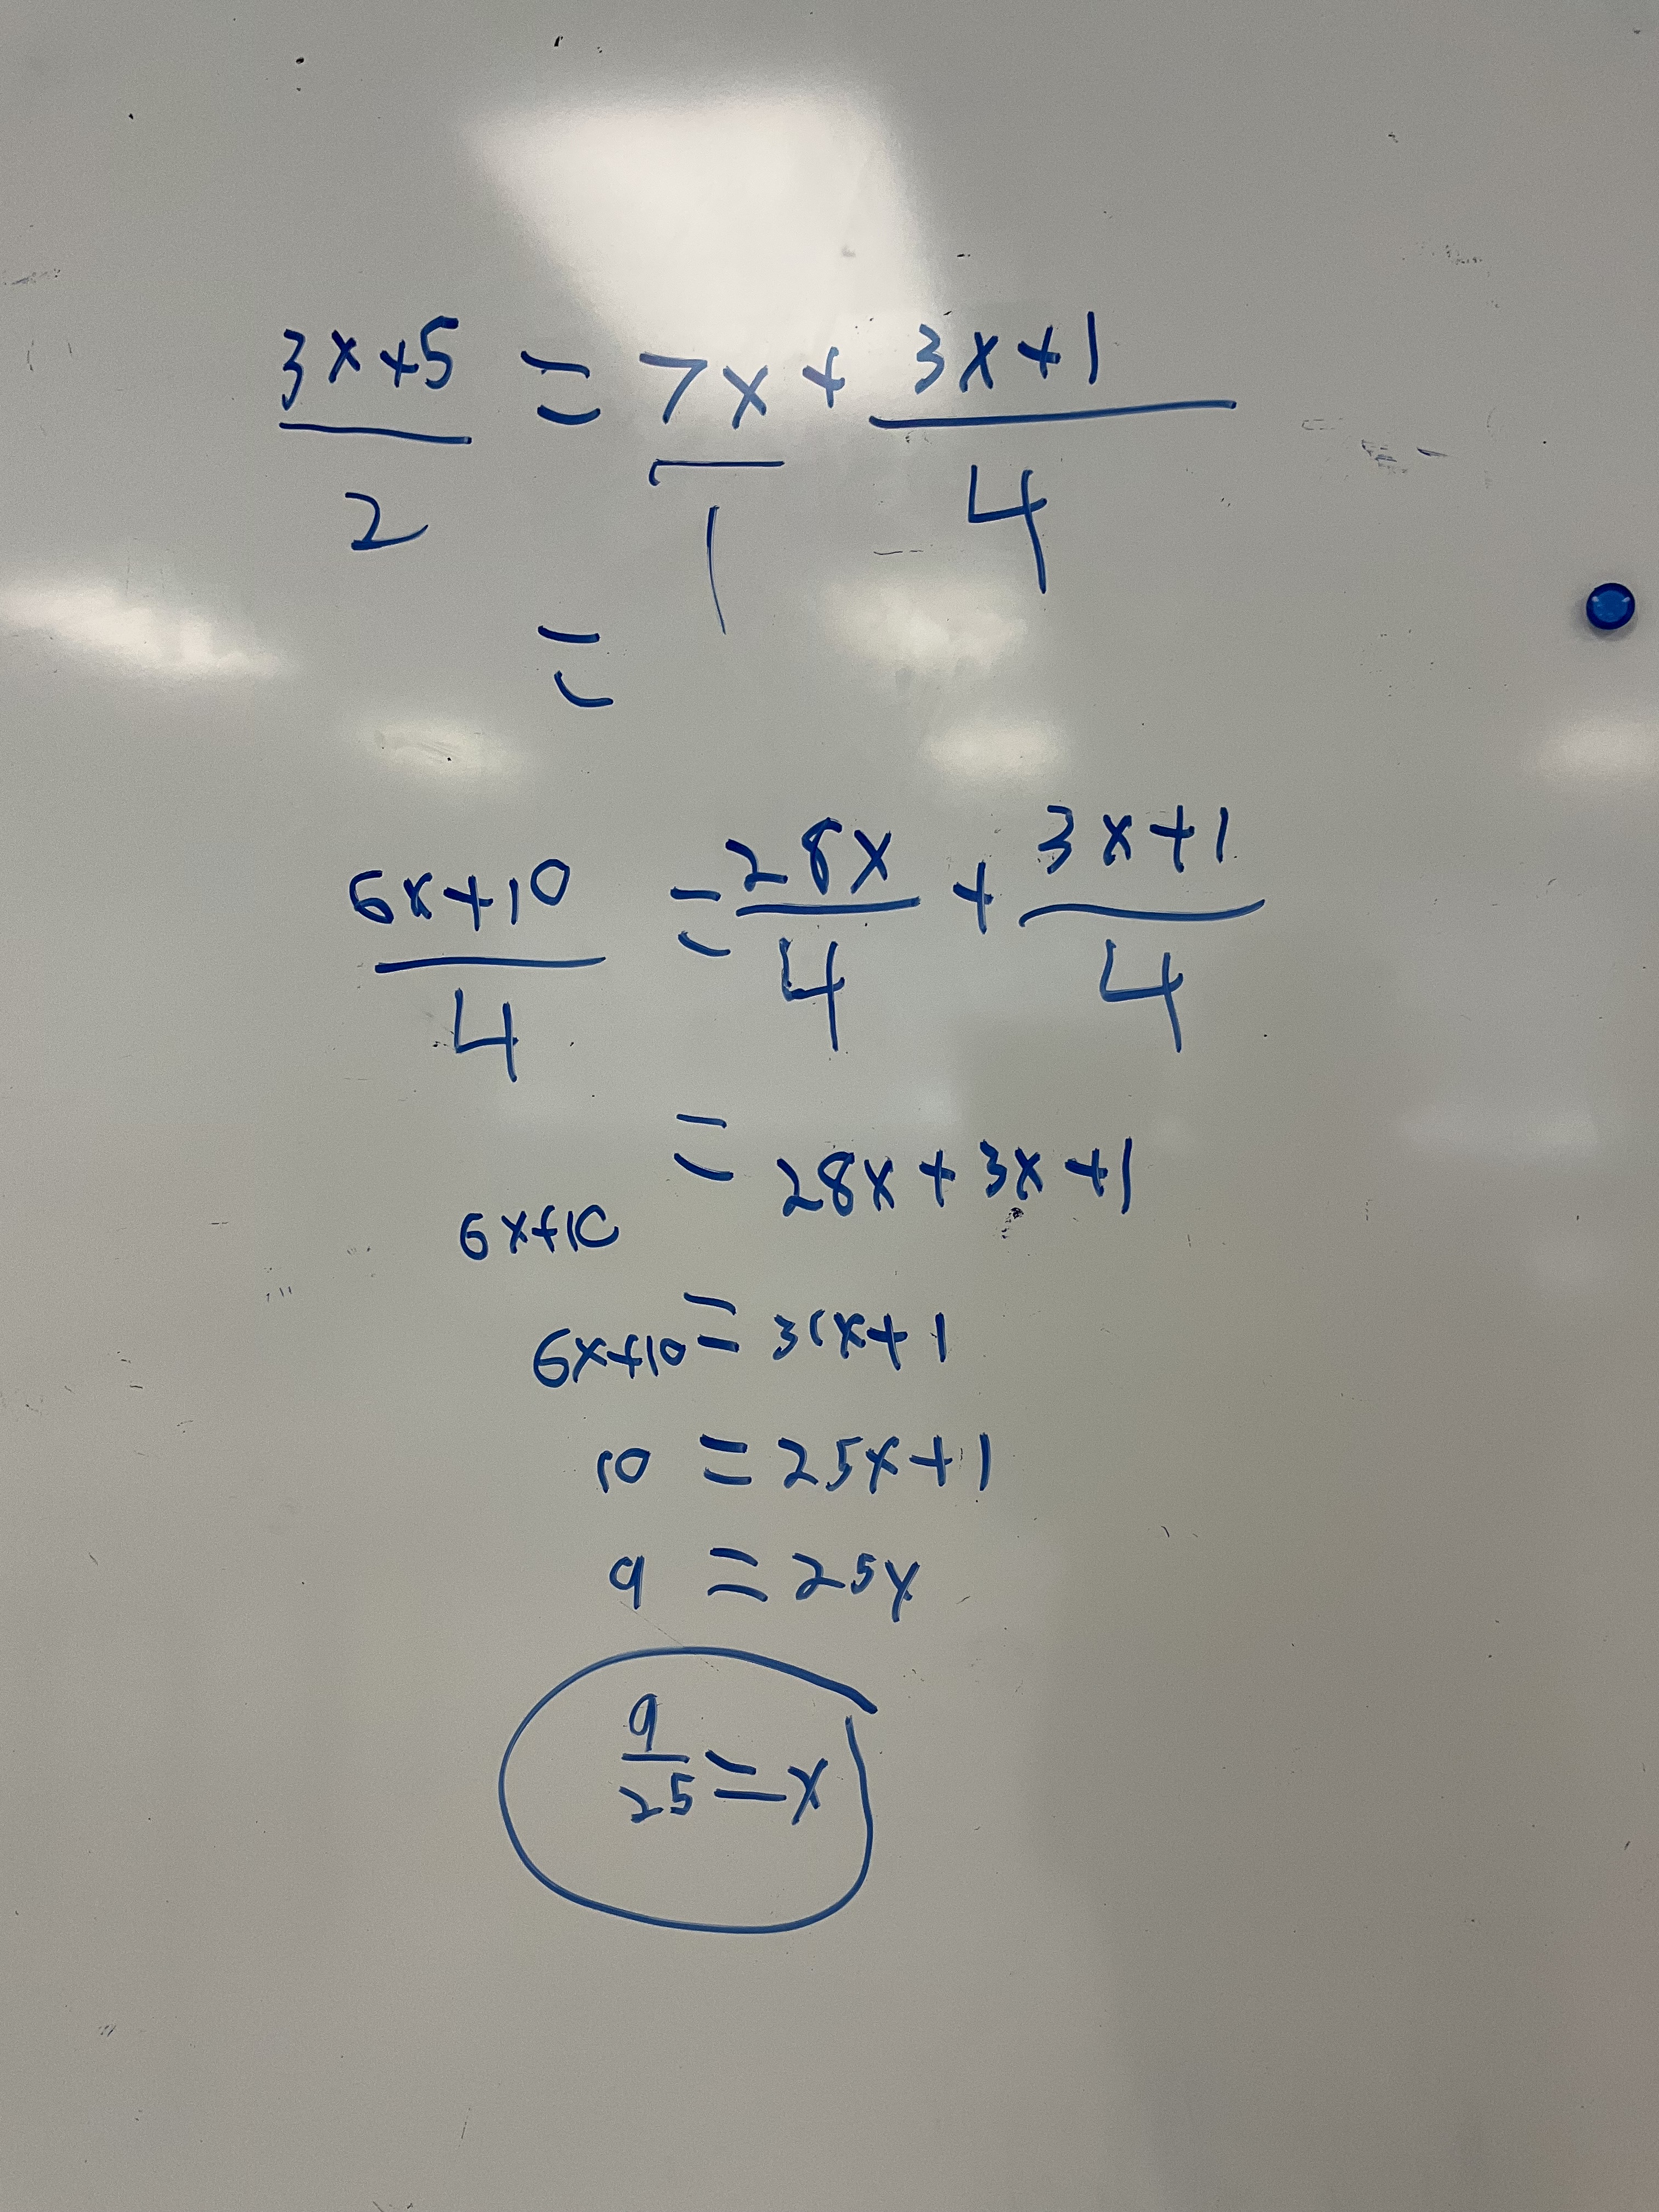 3x+5 = 7x + 3x+1
2 1 4
=
6x+10 = 28x + 3x+1
4 4 4
= 28x + 3x +1
6x+10
6x+10 = 31x+1
10 = 25x+1
9 = 25x
9
25 = x